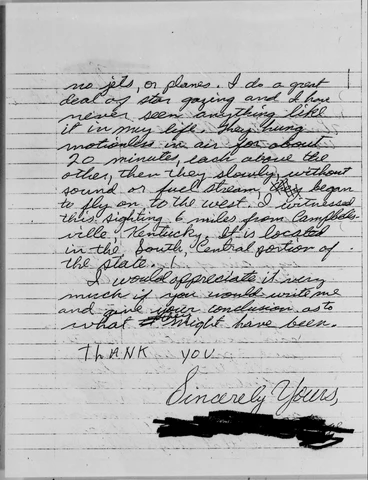 no jets, or planes. I do a great
deal of star gazing and I have
never seen anything like
it in my life. They hung
motionless in air for about
20 minutes, each above the
other, then they slowly, without
sound or fuel stream, they began
to fly on to the west. I witnessed
this sighting 6 miles from Campbells-
ville, Kentucky. It is located
in the South, Central portion of
the state.
I would appreciate it very
much if you would write me
and give your conclusion as to
what they might have been.
THANK YOU
Sincerely Yours,